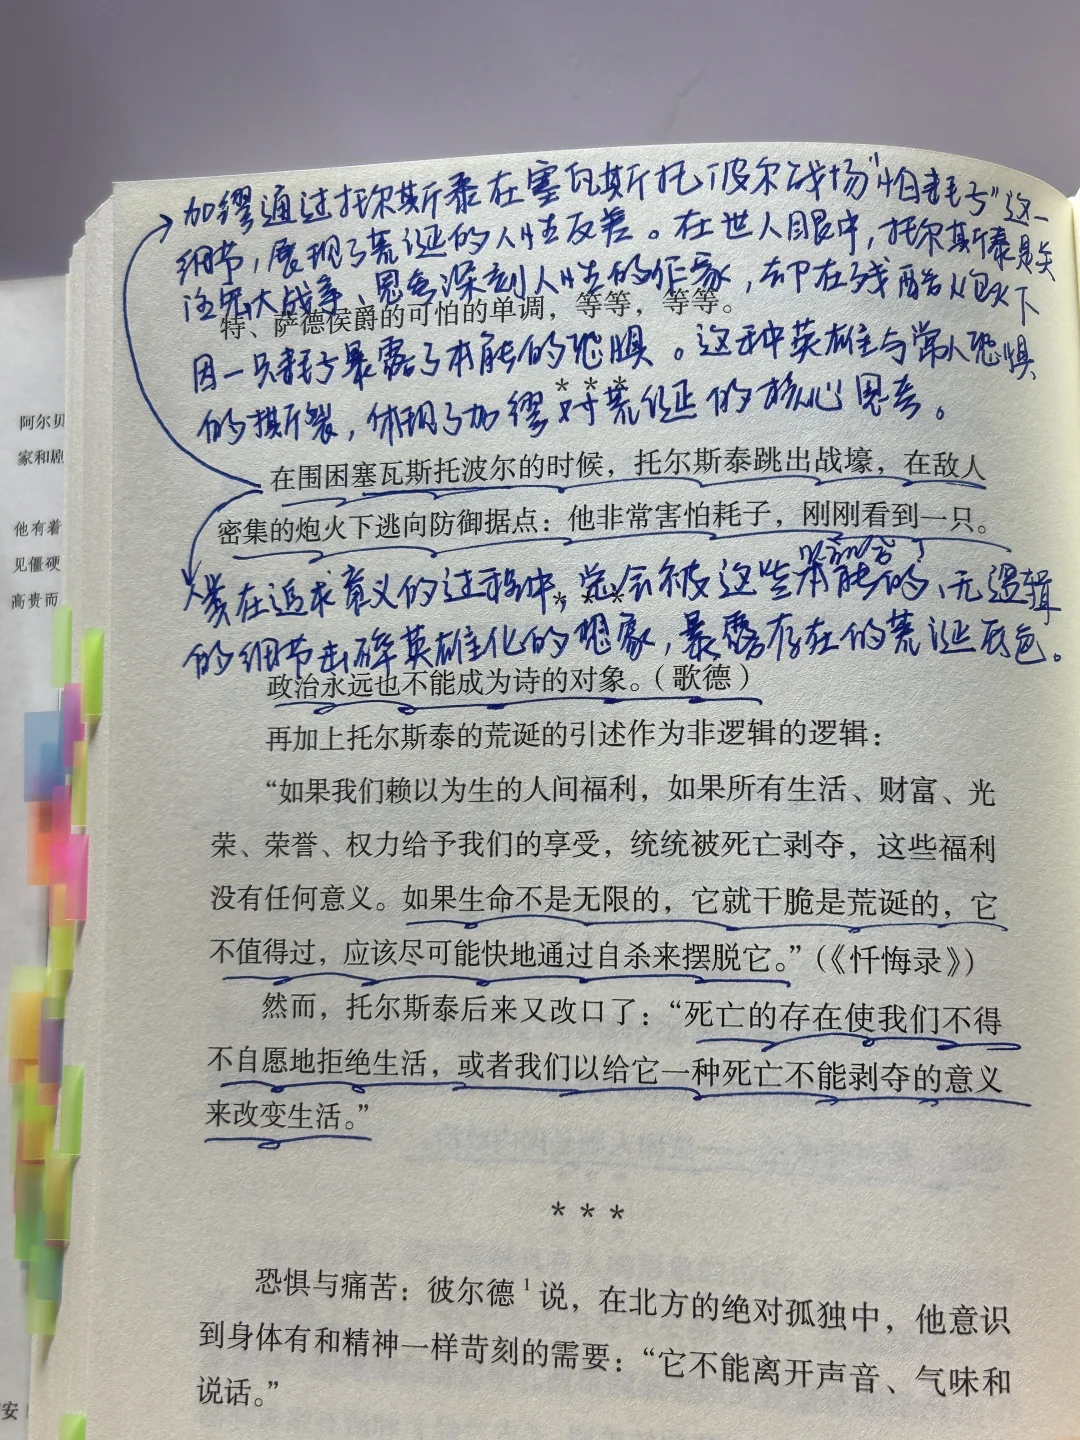 加缪通过托尔斯泰在塞瓦斯托波尔战场“怕耗子”这一
细节，展现了荒诞的人性反差。在世人眼中，托尔斯泰是关
注宏大战争、思考深刻人性的作家，却在残酷炮火下
特、萨德侯爵的可怕的单调，等等，等等。
因一只耗子暴露了本能的恐惧。这种英雄与常人恐惧
* * *
的撕裂，体现了加缪对荒诞的核心思考。
在围困塞瓦斯托波尔的时候，托尔斯泰跳出战壕，在敌人
密集的炮火下逃向防御据点：他非常害怕耗子，刚刚看到一只。
人类在追求意义的过程中，总会被这些本能的、无逻辑
* * *
的细节击碎英雄化的想象，暴露存在的荒诞底色。
政治永远也不能成为诗的对象。（歌德）
再加上托尔斯泰的荒诞的引述作为非逻辑的逻辑：
“如果我们赖以为生的人间福利，如果所有生活、财富、光
荣、荣誉、权力给予我们的享受，统统被死亡剥夺，这些福利
没有任何意义。如果生命不是无限的，它就干脆是荒诞的，它
不值得过，应该尽可能快地通过自杀来摆脱它。”（《忏悔录》）
然而，托尔斯泰后来又改口了：“死亡的存在使我们不得
不自愿地拒绝生活，或者我们以给它一种死亡不能剥夺的意义
来改变生活。”
* * *
恐惧与痛苦：彼尔德1说，在北方的绝对孤独中，他意识
到身体有和精神一样苛刻的需要：“它不能离开声音、气味和
说话。”
阿尔贝
家和剧
他有着
见僵硬
高贵而
安